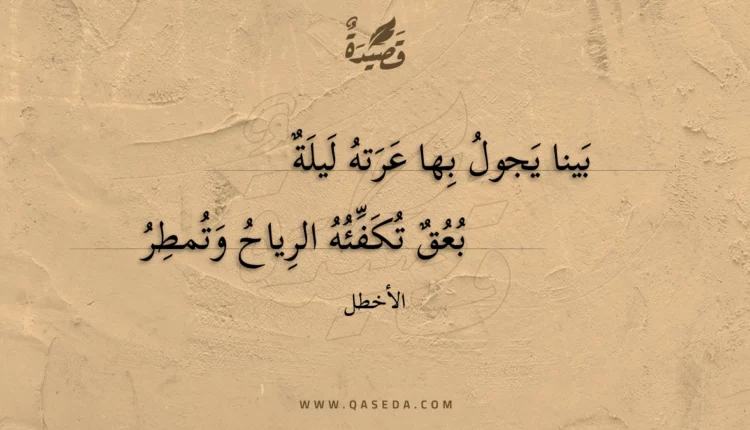 قَصِيدَةٌ
بَينا يَجولُ بِها عَرَتهُ لَيلَةٌ
بُعُقٌ تُكَفِّئُهُ الرِياحُ وَتُمطِرُ
الأخطل
WWW.QASEDA.COM